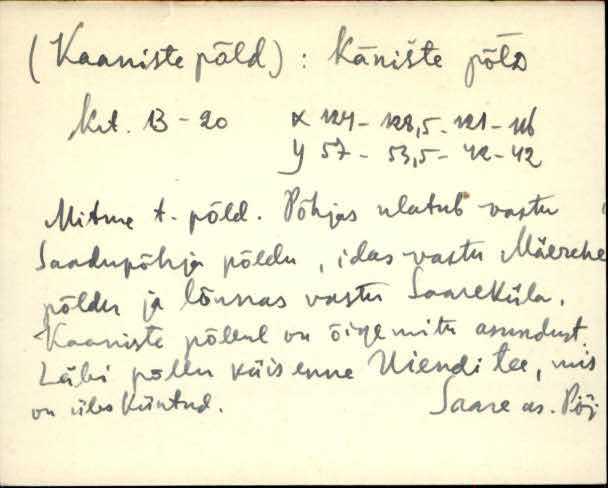 (Kaaniste põld) : Kānište põlD
Krt. B - 20 x 124 - 128,5 - 121 - 116
y 57 - 53,5 - 42 - 42
Mitme t. põld. Põhjas ulatub vastu
Saadupõhja põldu, idas vastu Mäe
põldu ja lõunas vastu Saareküla.
Kaaniste põllul on õige mitu asundust.
Läbi põllu käis enne Uiendi tee, mis
on üles küntud. Saare as. Pöi